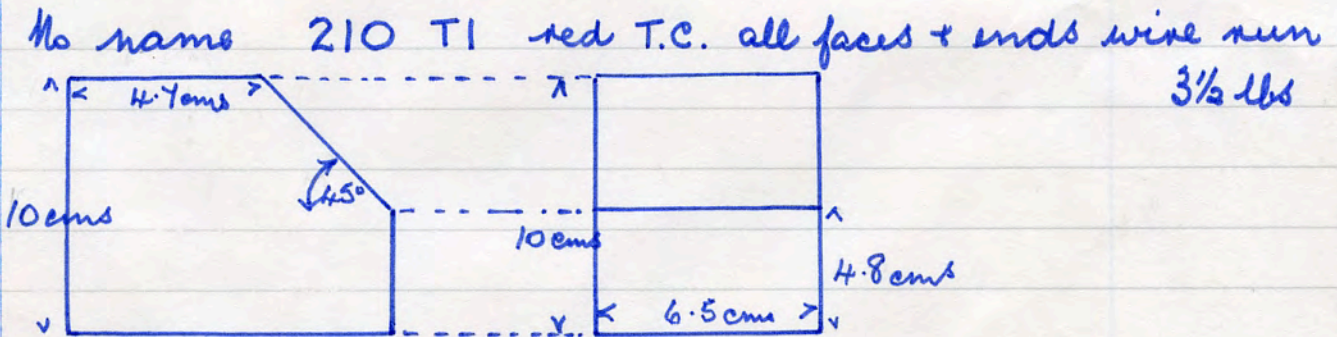 No name 210 T1 red T.C. all faces + ends wire run
3½ lbs
4.7cms
10cms
45°
10cms
4.8cms
6.5cms